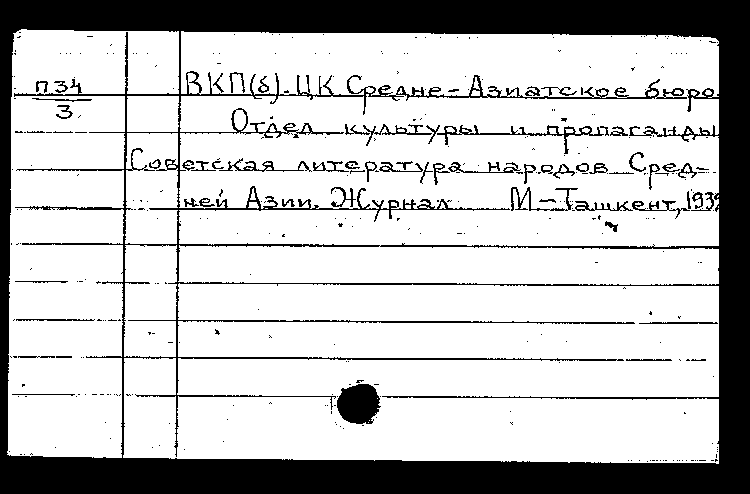 П34
3
ВКП(б). ЦК Средне-Азиатское бюро.
Отдел культуры и пропаганды
Советская литература народов Сред-
ней Азии. Журнал. М-Ташкент,